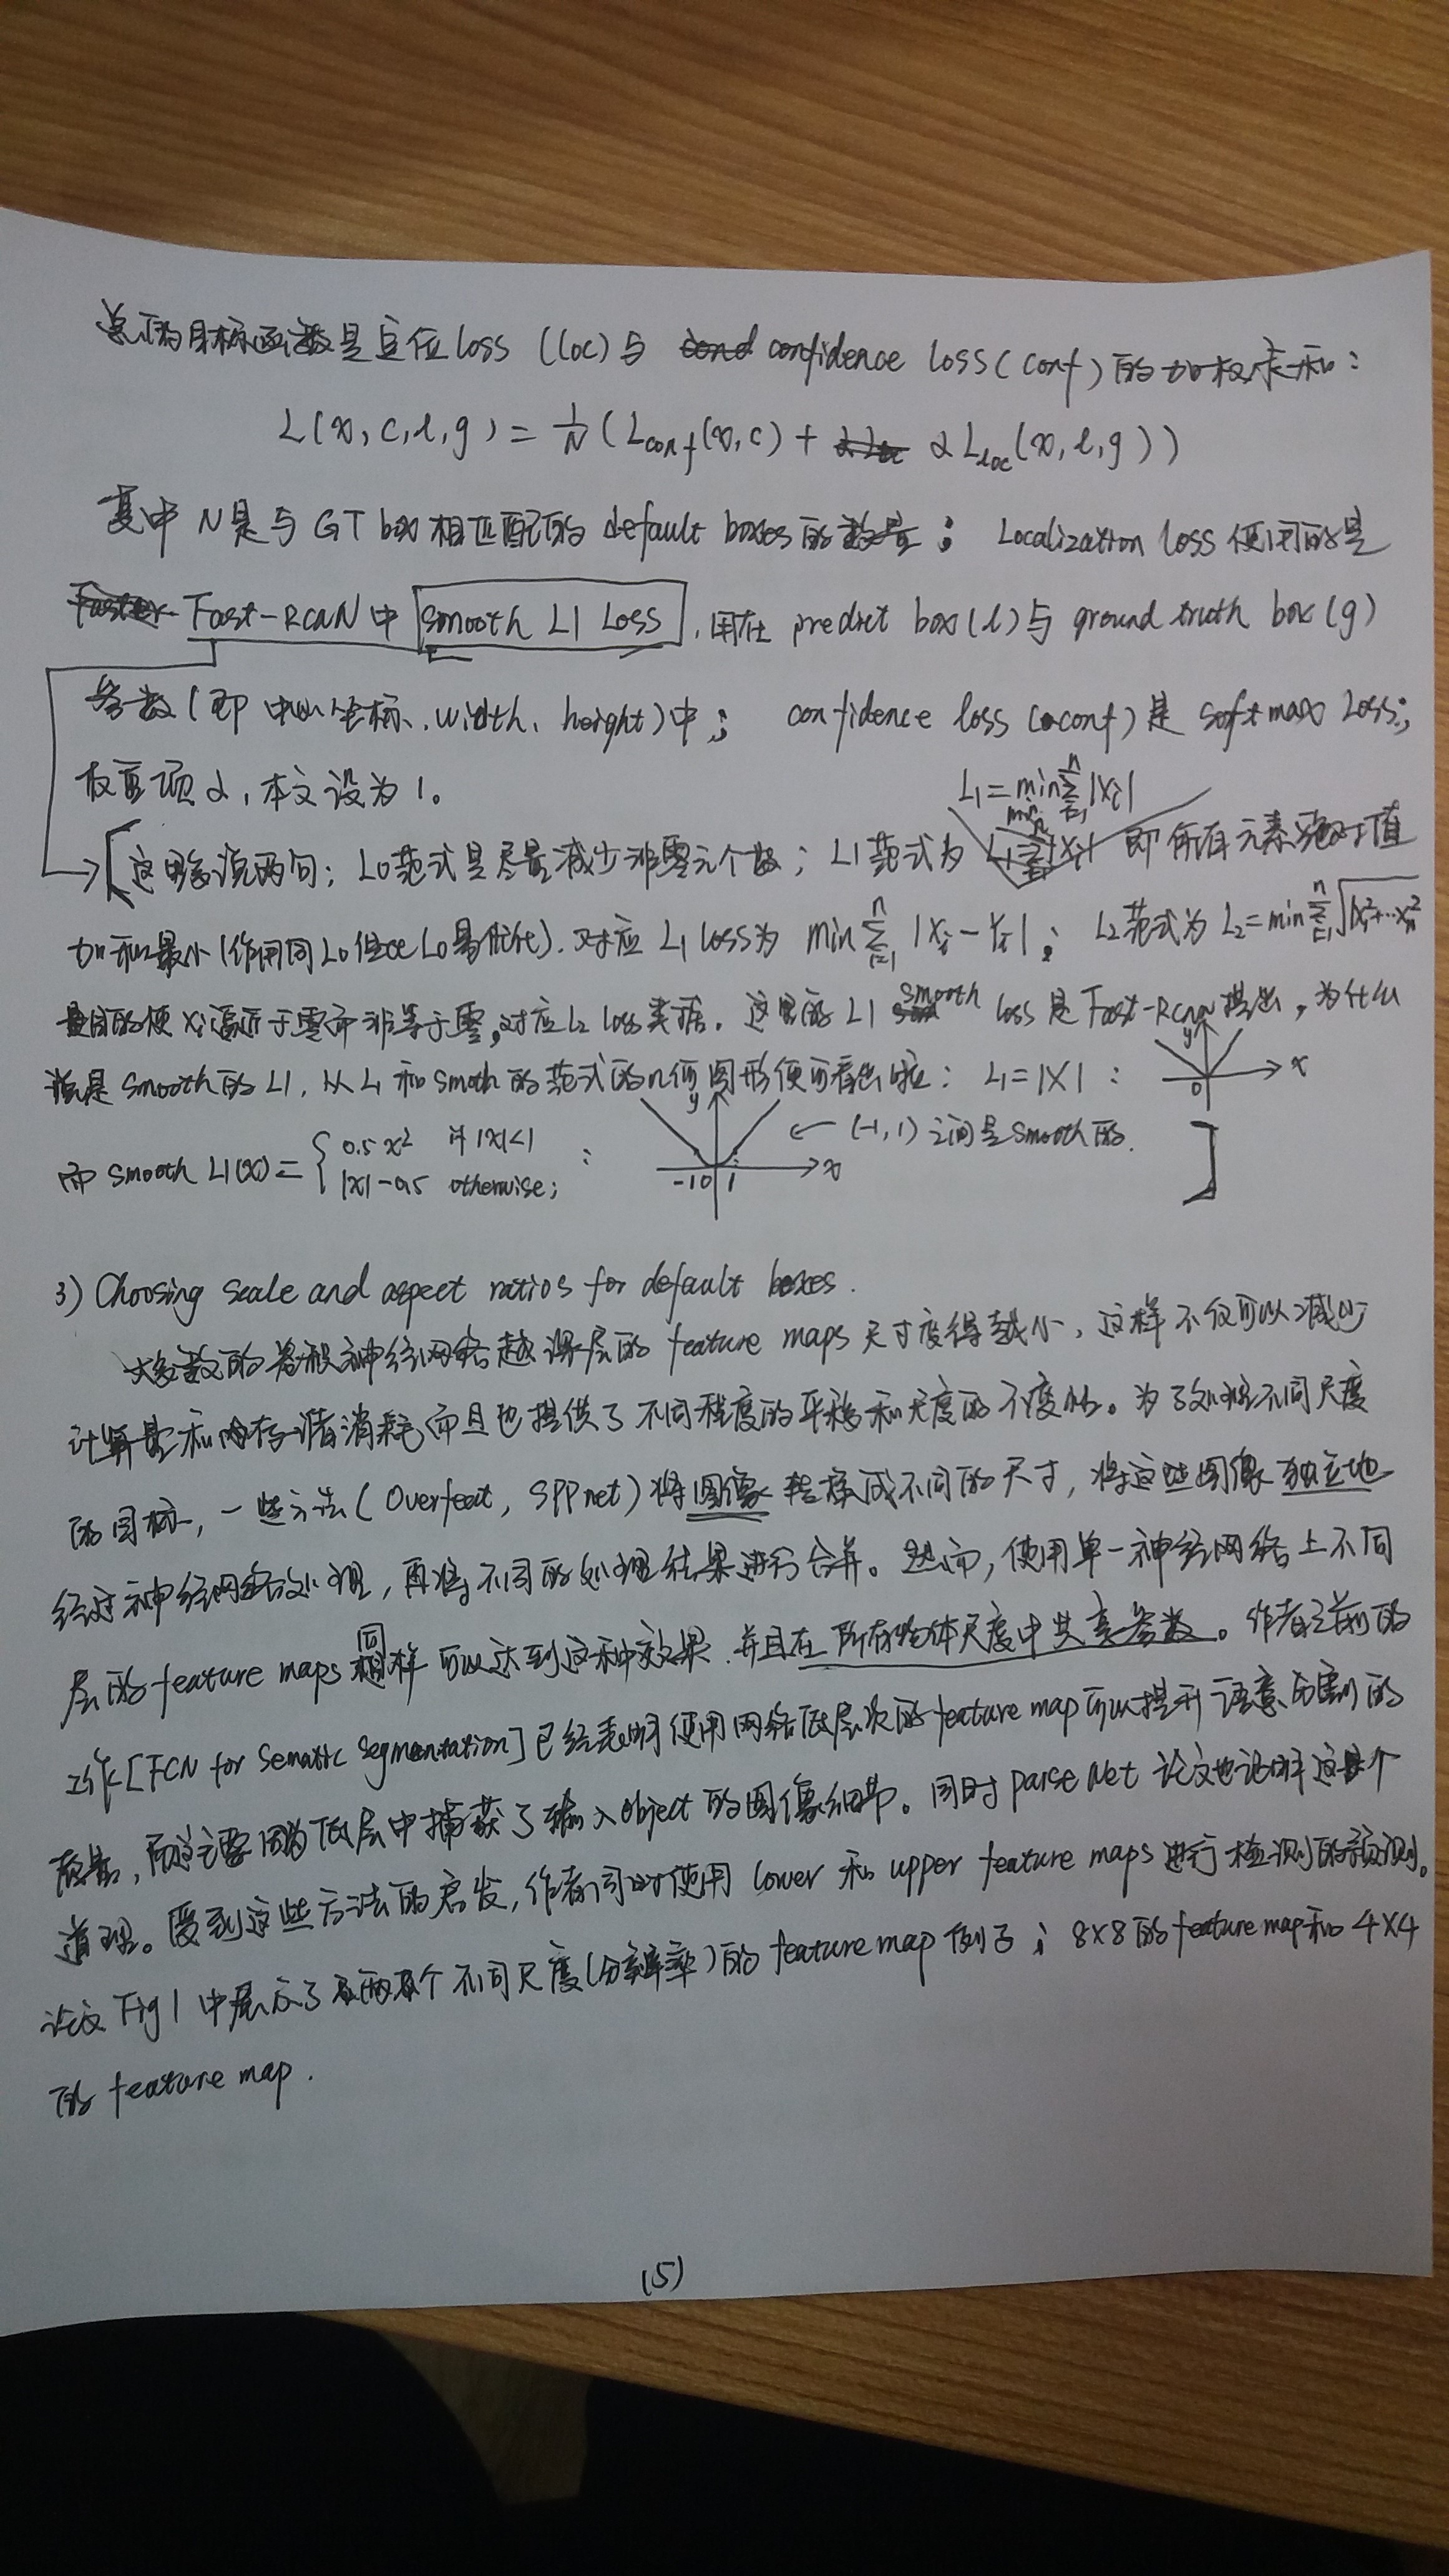 总的目标函数是定位loss (loc)与 confidence loss(conf)的加权求和:
L(x, c, l, g) = 1/N (Lconf(x, c) + αLloc(x, l, g))
其中 N是与GT box相匹配的 default boxes的数量; Localization loss 使用的是
Fast-RCNN中 smooth L1 Loss, 用在 predict box(l)与 ground truth box(g)
参数(即中心坐标、width、height)中; confidence loss (conf)是 softmax Loss;
权重项α, 本文设为1。
L1=min∑ⁿᵢ₌₁|xi|
[这里多说两句; L0范式是尽量减少非零元个数; L1范式为 即所有元素绝对值
加和最小(作用同L0但比L0易优化). 对应 L1 loss为 min∑ⁿᵢ₌₁|xi-Yi|; L2范式为 L2=min∑ⁿᵢ₌₁√x₁²+…xn²
目的使xi逼近于零而非等于零,对应L2 loss类推. 这里的 L1 smooth loss是Fast-RCNN提出,为什么
说是 Smooth的L1, 从L1和smoth的范式的几何图形便可看出啦: L1=|X| : y 0 x
而 smooth L1(x)= { 0.5x² if |x|<1 : y -1 0 1 x ← (-1,1)之间是smooth的. ]
|x|-0.5 otherwise;
3) Choosing scale and aspect ratios for default boxes.
大多数的卷积神经网络越深层的 feature maps尺寸变得越小, 这样不仅可以减少
计算量和内存消耗而且也提供了不同程度的平移和尺度的不变性。为了处理不同尺度
的目标, 一些方法(Overfeat, SPPnet)将图像转换成不同的尺寸, 将这些图像独立地
经过神经网络处理, 再将不同的处理结果进行合并。然而, 使用单一神经网络上不同
层的feature maps 同样可以达到这种效果, 并且在所有物体尺度中共享参数。作者之前的
工作[FCN for Sematic Segmentation]已经表明使用网络低层次的feature map可以提升语意分割的
质量, 主要因为低层中捕获了输入object的图像细节。同时 parse Net 论文也证明这个
道理。受到这些方法的启发, 作者同时使用 lower 和 upper feature maps 进行检测的预测。
论文 Fig 1 中展示了两个不同尺度(分辨率)的 feature map 例子; 8X8的feature map和 4X4
的 feature map.
(5)